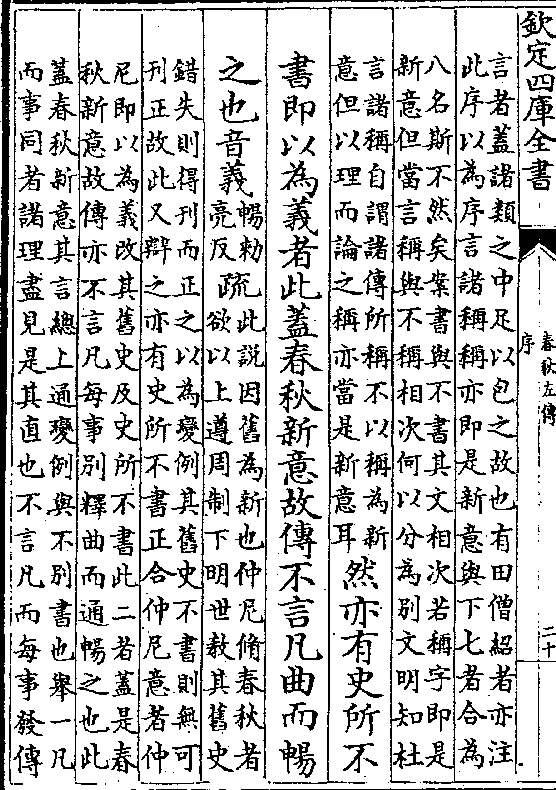 欽定四庫全書
春秋左傳
序
二十
言者蓋諸類之中足以包之故也有田僧紹者亦注
此序以為序言諸稱稱亦即是新意與下七者合為
八名斯不然矣案書與不書其文相次若稱字即是
新意但當言稱與不稱相次何以分為別文明知杜
言諸稱自謂諸傳所稱不以稱為新
意但以理而論之稱亦當是新意耳
然亦有史所不
書即以為義者此蓋春秋新意故傳不言凡曲而暢
之也音義
暢勅
亮反
疏
此說因舊為新也仲尼脩春秋者
欲以上遵周制下明世教其舊史
錯失則得刊而正之以為變例其舊史不書則無可
刊正故此又辯之亦有史所不書正合仲尼意者仲
尼即以為義改其舊史及史所不書此二者蓋是春
秋新意故傳亦不言凡每事別釋曲而通暢之也此
蓋春秋新意其言總上通變例與不別書也舉一凡
而事同者諸理盡見是其直也不言凡而每事發傳